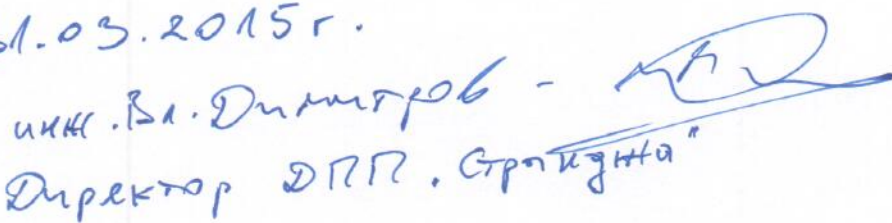 31.03.2015г.
инж. Вл. Димитров -
Директор ДПП „Странджа"